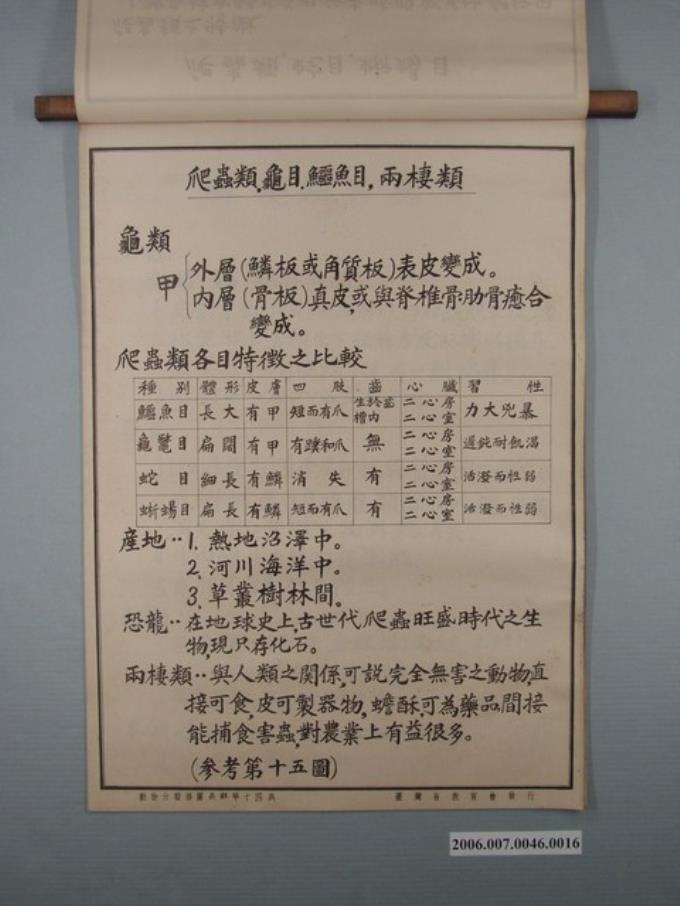 爬蟲類,龜目.鱷魚目,兩棲類
龜類
甲
外層(鱗板或角質板)表皮變成。
內層(骨板)真皮,或與脊椎骨肋骨癒合
變成。
爬蟲類各目特徵之比較
種別 體形 皮膚 四肢 齒 心臟 習性
鱷魚目 長大 有甲 短而有爪 生於齒槽內 二心房二心室 力大兇暴
龜鼈目 扁闊 有甲 有蹼和爪 無 二心房二心室 遲鈍耐飢渴
蛇目 細長 有鱗 消失 有 二心房二心室 活潑而性弱
蜥蜴目 扁長 有鱗 短而有爪 有 二心房二心室 活潑而性弱
產地‥1.熱地沼澤中。
2.河川海洋中。
3.草叢樹林間。
恐龍‥在地球史上,古世代爬蟲旺盛時代之生
物,現只存化石。
兩棲類‥與人類之關係,可説完全無害之動物,直
接可食,皮可製器物,蟾酥可為藥品間接
能捕食害蟲,對農業上有益很多。
(參考第十五圖)
臺灣省教育會發行
2006.007.0046.0016